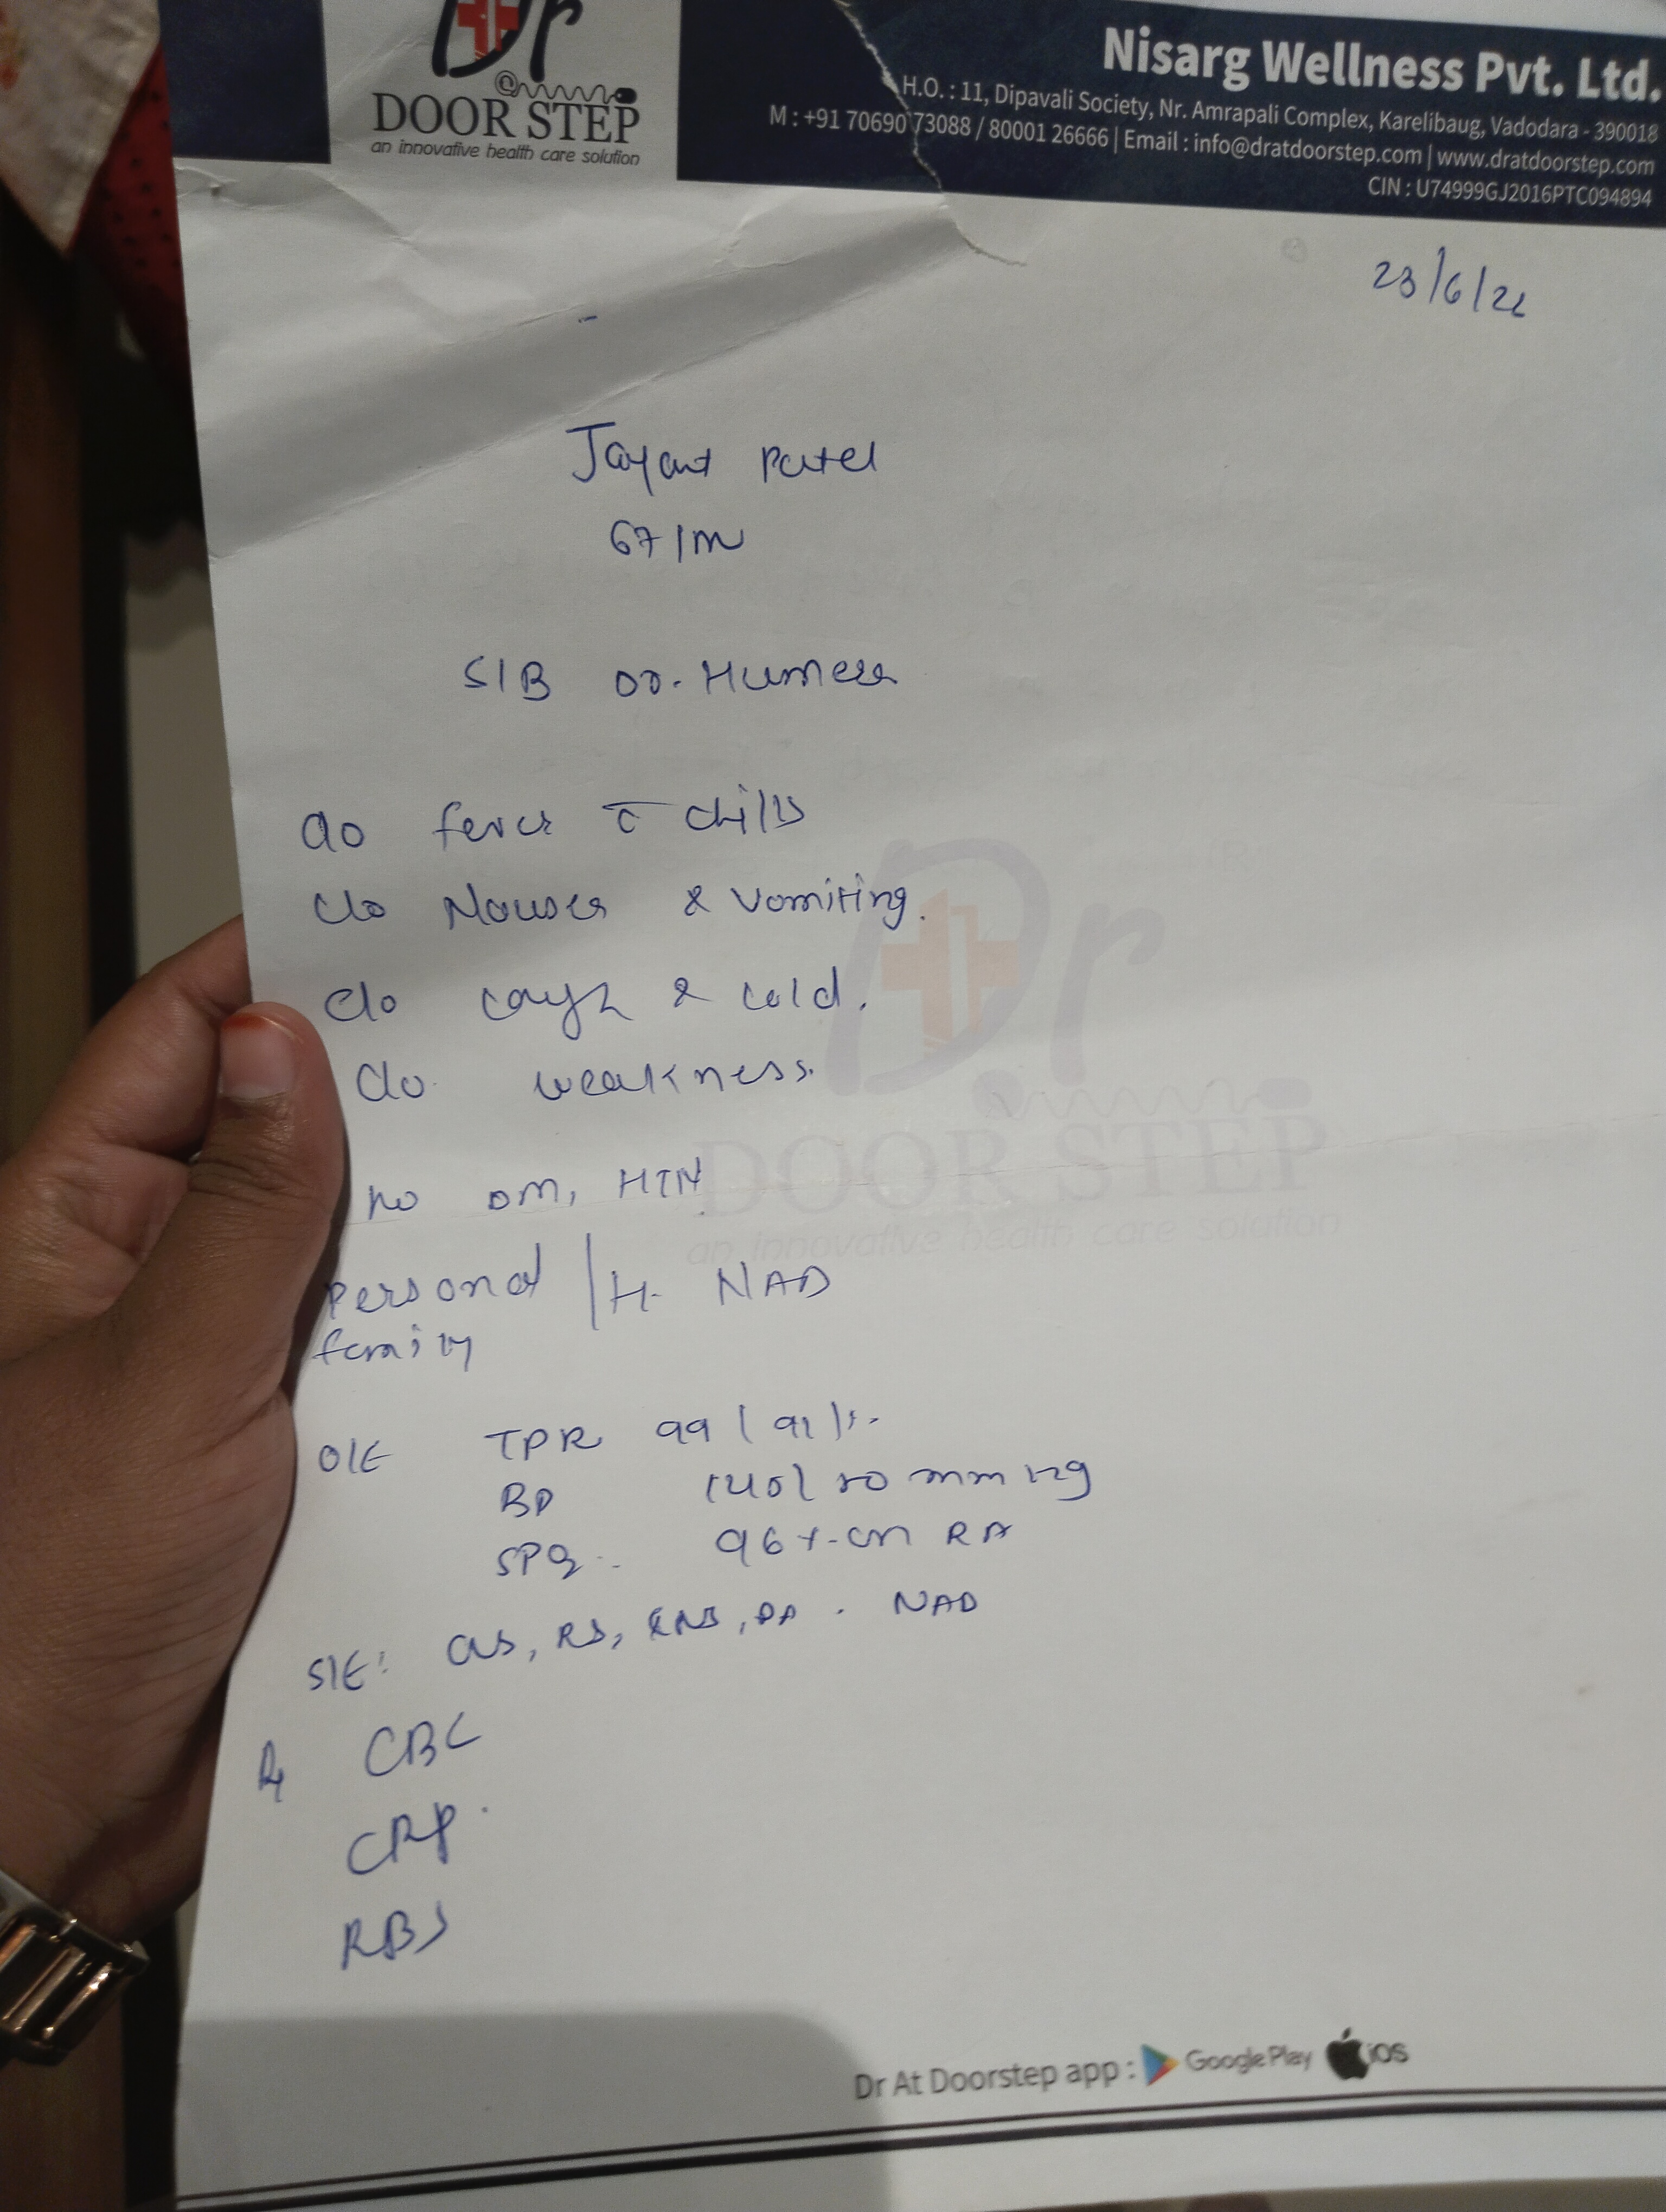 Dr
DOOR STEP
an innovative health care solution
Nisarg Wellness Pvt. Ltd.
H.O. : 11, Dipavali Society, Nr. Amrapali Complex, Karelibaug, Vadodara - 390018
M : +91 70690 73088 / 80001 26666 | Email : info@dratdoorstep.com | www.dratdoorstep.com
CIN : U74999GJ2016PTC094894
23/6/22
Jayant Patel
67/m
S/B Dr. Humera
c/o fever c̄ chills
c/o Nausea & vomiting.
c/o cough & cold.
c/o weakness.
no DM, HTN
Personal /H- NAD
family
O/E TPR 99 / 92 /
BP 140/80 mm Hg
SPO2 96%-on RA
S/E: CVS, RS, CNS, PA . NAD
Rx CBC
CRP.
RBS
Dr
DOOR STEP
an innovative health care solution
Dr At Doorstep app : Google Play iOS